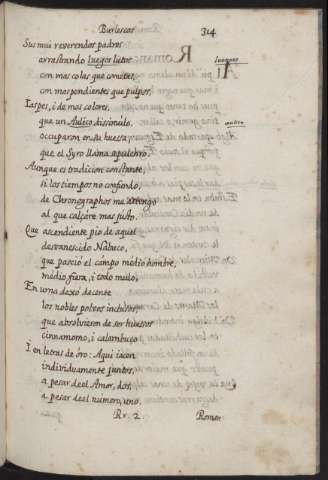 Burlescas 314
Sus mui reverendos padres
arrastrando luegos lutos luengos
con mas colas que cometas,
con mas pendientes que pulpos,
Iaspes, i de mas colores,
que un Aulico disimulo, aulico
ocuparon en su huesa,
que el Syro llama sepulchro.
Aunque es tradicion constante,
si los tiempos no confundo,
de Chronographos me atengo
al que calçàre mas justo.
Que ascendiente pio de aquel
desvanescido Nabuco,
que pasciò el campo medio hombre,
medio fiera, i todo mulo,
En urna dexò decente
los nobles polvos inclusos,
que absolvieron de ser huesos
cinnamomo, i calambuco.
I en letras de òro: Aqui iacen
individuamente juntos,
a pesar de el Amor, dos,
a pesar de el numero, uno.
Rr. 2. Roman